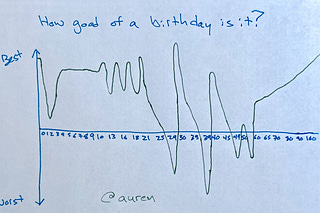 How good of a birthday is it?
Best
0 1 2 3 4 5 6 7 8 9 10 13 16 18 21 25 29 30 39 40 45 49 50 60 65 70 80 90 100
Worst
@auren